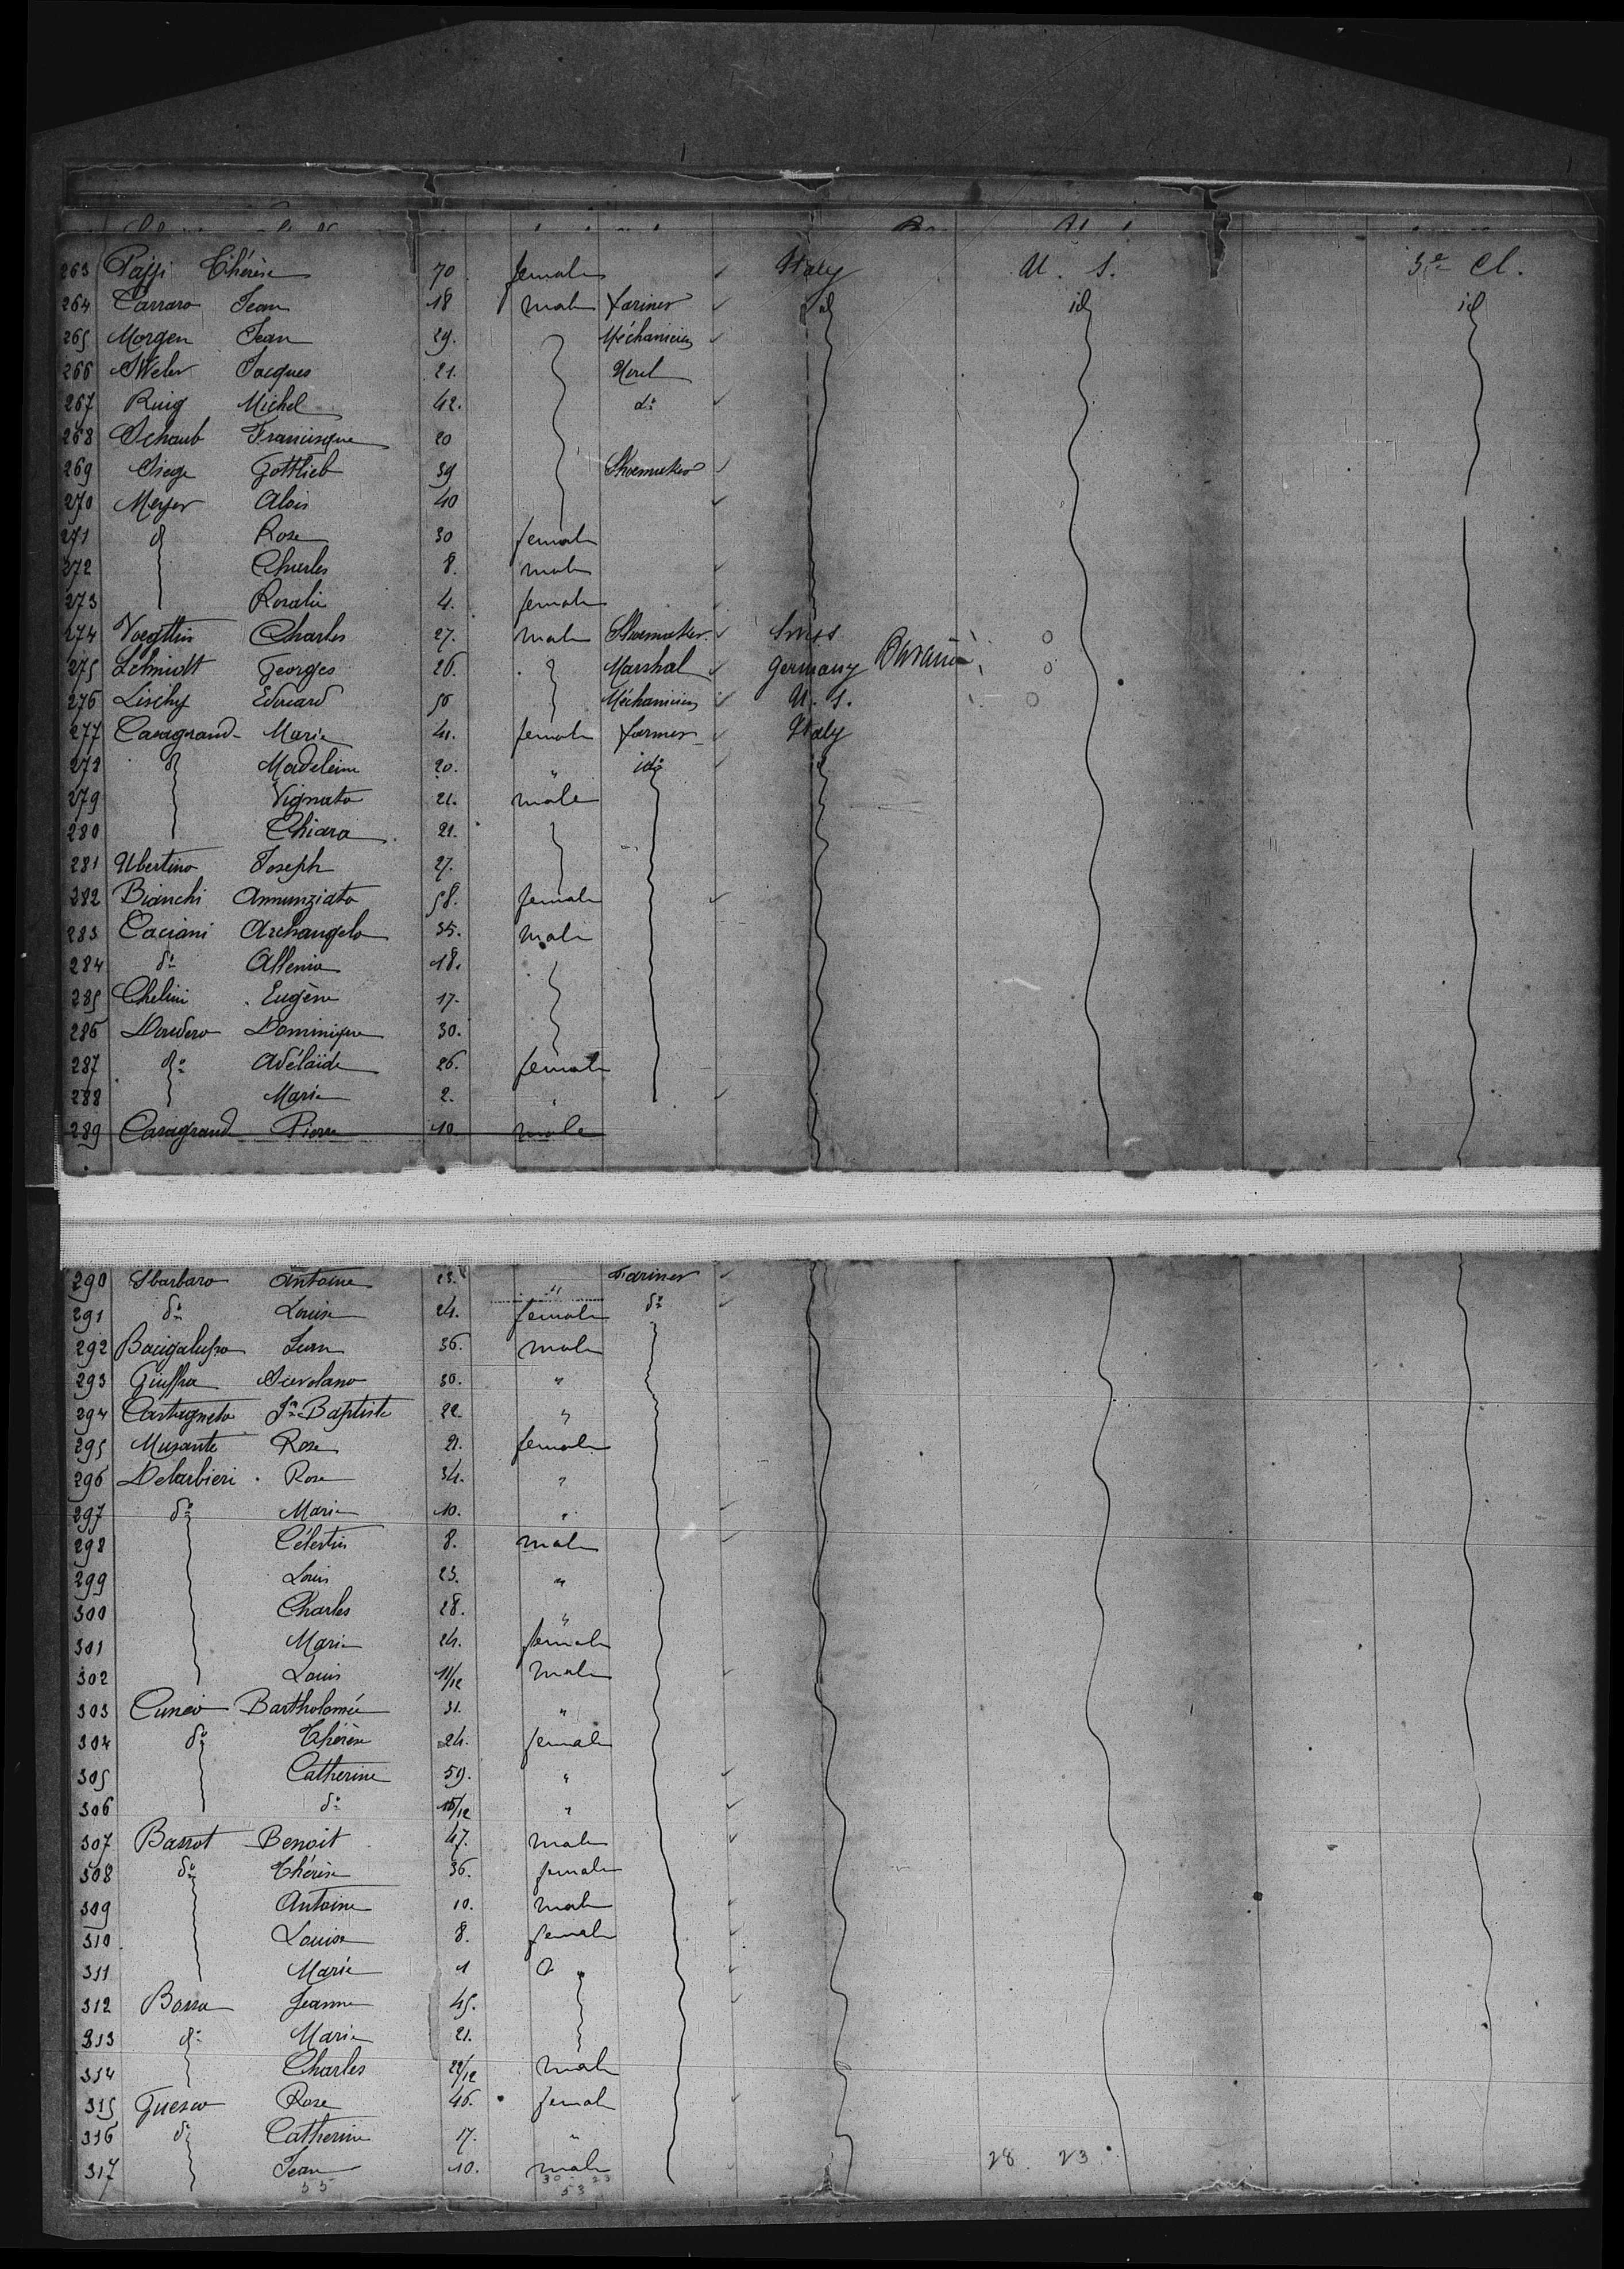 263 Paffi Thérèse 70 female Italy U. S. 3e Cl.
264 Carraro Jean 18 male farmer id id id
265 Morgen Jean 29. Méchanicien
266 Weber Jacques 21.
267 Ruig Michel 42. do
268 Schaub Francisque 20
269 Siege Gottlieb 39 Shoemaker
270 Meyer Alois 40
271 d Rose 30 female
272 Charles 8. male
273 Rosalie 4. female
274 Voegtlin Charles 27. male Shoemaker Swiss
275 Schmidt Georges 26. Marshal Germany Bavaria
276 Lischy Edouard 50 Méchanicien U. S.
277 Casagrand Marie 41. female farmer Italy
278 d Madeleine 20. " ido id
279 Vignato 21. male
280 Chiara 21.
281 Ubertino Joseph 27.
282 Bianchi Annunziata 58. female
283 Caciani Archangelo 35. male
284 do Allenia 18.
285 Chelini Eugène 17.
286 Dondero Dominique 30.
287 do Adélaïde 26. female
288 Marie 2. "
289 Casagrand Pierre 10. male
290 Sbarbaro Antoine 23. " Farmer
291 do Louise 24. female do
292 Bacigalupo Jean 36. male
293 Giuffra 30. "
294 Castagneto Jn Baptiste 22. "
295 Musante Rose 21. female
296 Debarbieri Rose 34. "
297 do Marie 10. "
298 Célestin 8. male
299 Louis 23. "
300 Charles 28. "
301 Marie 24. female
302 Louis 11/12 male
303 Cuneo Bartholomée 31. "
304 do Thérèse 24. female
305 Catherine 59. "
306 do 10/12 "
307 Barrot Benoit 47. male
308 do Thérèse 36. female
309 Antoine 10. male
310 Louise 8. female
311 Marie 1 "
312 Barra Jeanne 45.
313 do Marie 21.
314 Charles 22/12 male
315 Rose 46. female
316 do Catherine 17. "
317 Jean 10. male 28 23
55 30 23
53